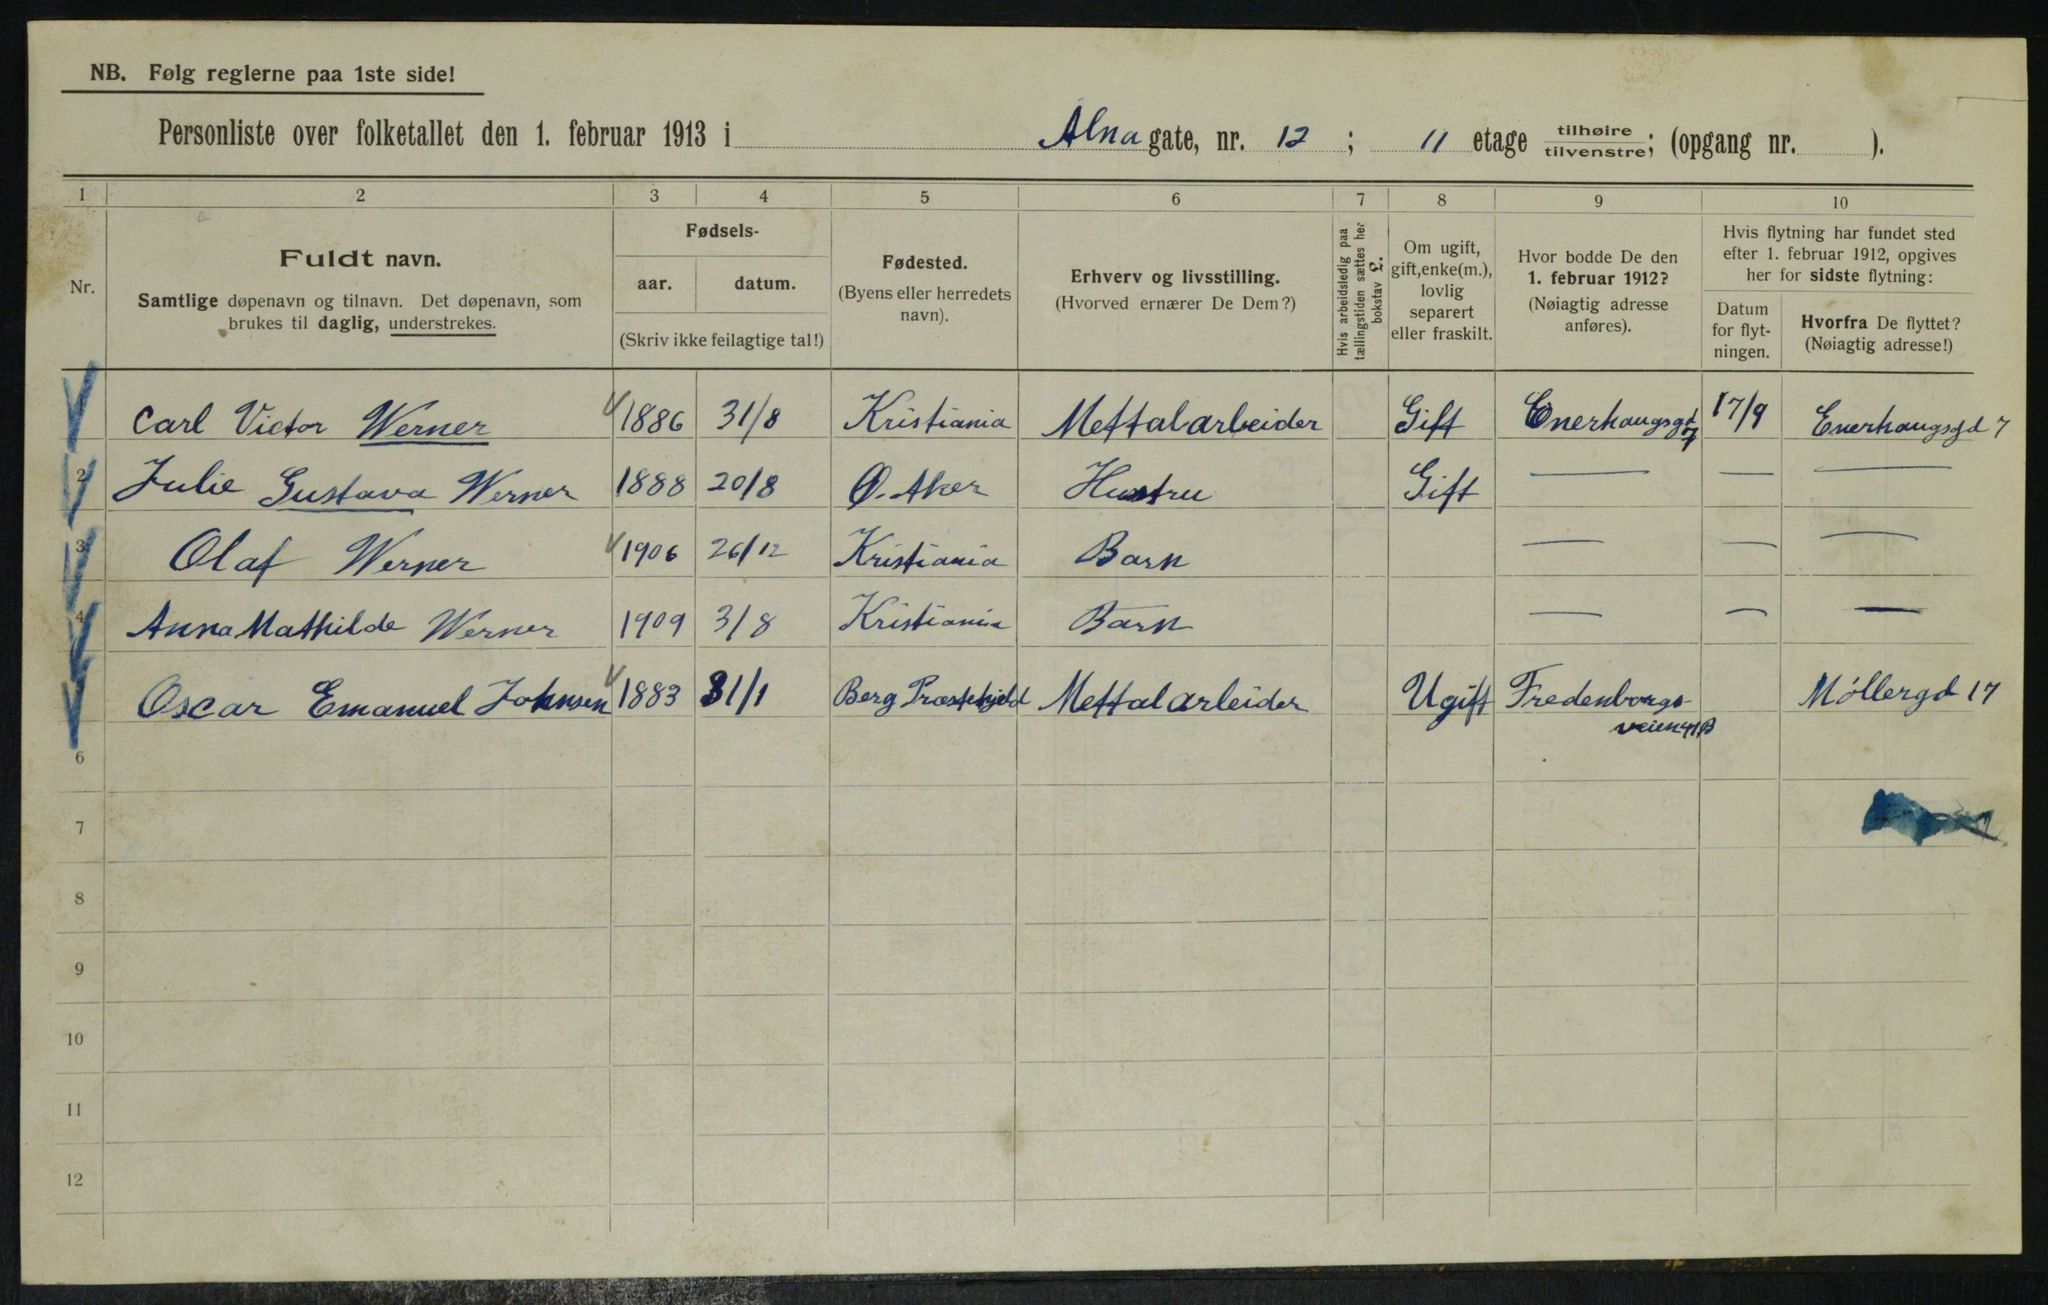 NB. Følg reglerne paa 1ste side!
Personliste over folketallet den 1. februar 1913 i Alna gate, nr. 12 ; 11 etage tilhøire / tilvenstre; (opgang nr. ).
1 2 3 4 5 6 7 8 9 10
Nr.
Fuldt navn.
Samtlige døpenavn og tilnavn. Det døpenavn, som
brukes til daglig, understrekes.
Fødsels-
aar. datum.
(Skriv ikke feilagtige tal!)
Fødested.
(Byens eller herredets
navn).
Erhverv og livsstilling.
(Hvorved ernærer De Dem?)
Hvis arbeidsledig paa
tællingstiden sættes her
bokstav L.
Om ugift,
gift, enke(m.),
lovlig
separert
eller fraskilt.
Hvor bodde De den
1. februar 1912?
(Nøiagtig adresse
anføres).
Hvis flytning har fundet sted
efter 1. februar 1912, opgives
her for sidste flytning:
Datum
for flyt-
ningen.
Hvorfra De flyttet?
(Nøiagtig adresse!)
Carl Victor Werner 1886 31/8 Kristiania Mettalarbeider Gift Enerhaugsgd 7 17/9 Enerhaugsgd 7
2 Julie Gustava Werner 1888 20/8 Ø. Aker Hustru Gift — — —
3 Olaf Werner 1906 26/12 Kristiania Barn — — —
4 Anna Mathilde Werner 1909 3/8 Kristiania Barn — — —
Oscar Emanuel Johnsen 1883 31/1 Berg Præstehjeld Mettalarbeider Ugift Fredenborgs- Møllergd 17
veien 41B
6
7
8
9
10
11
12